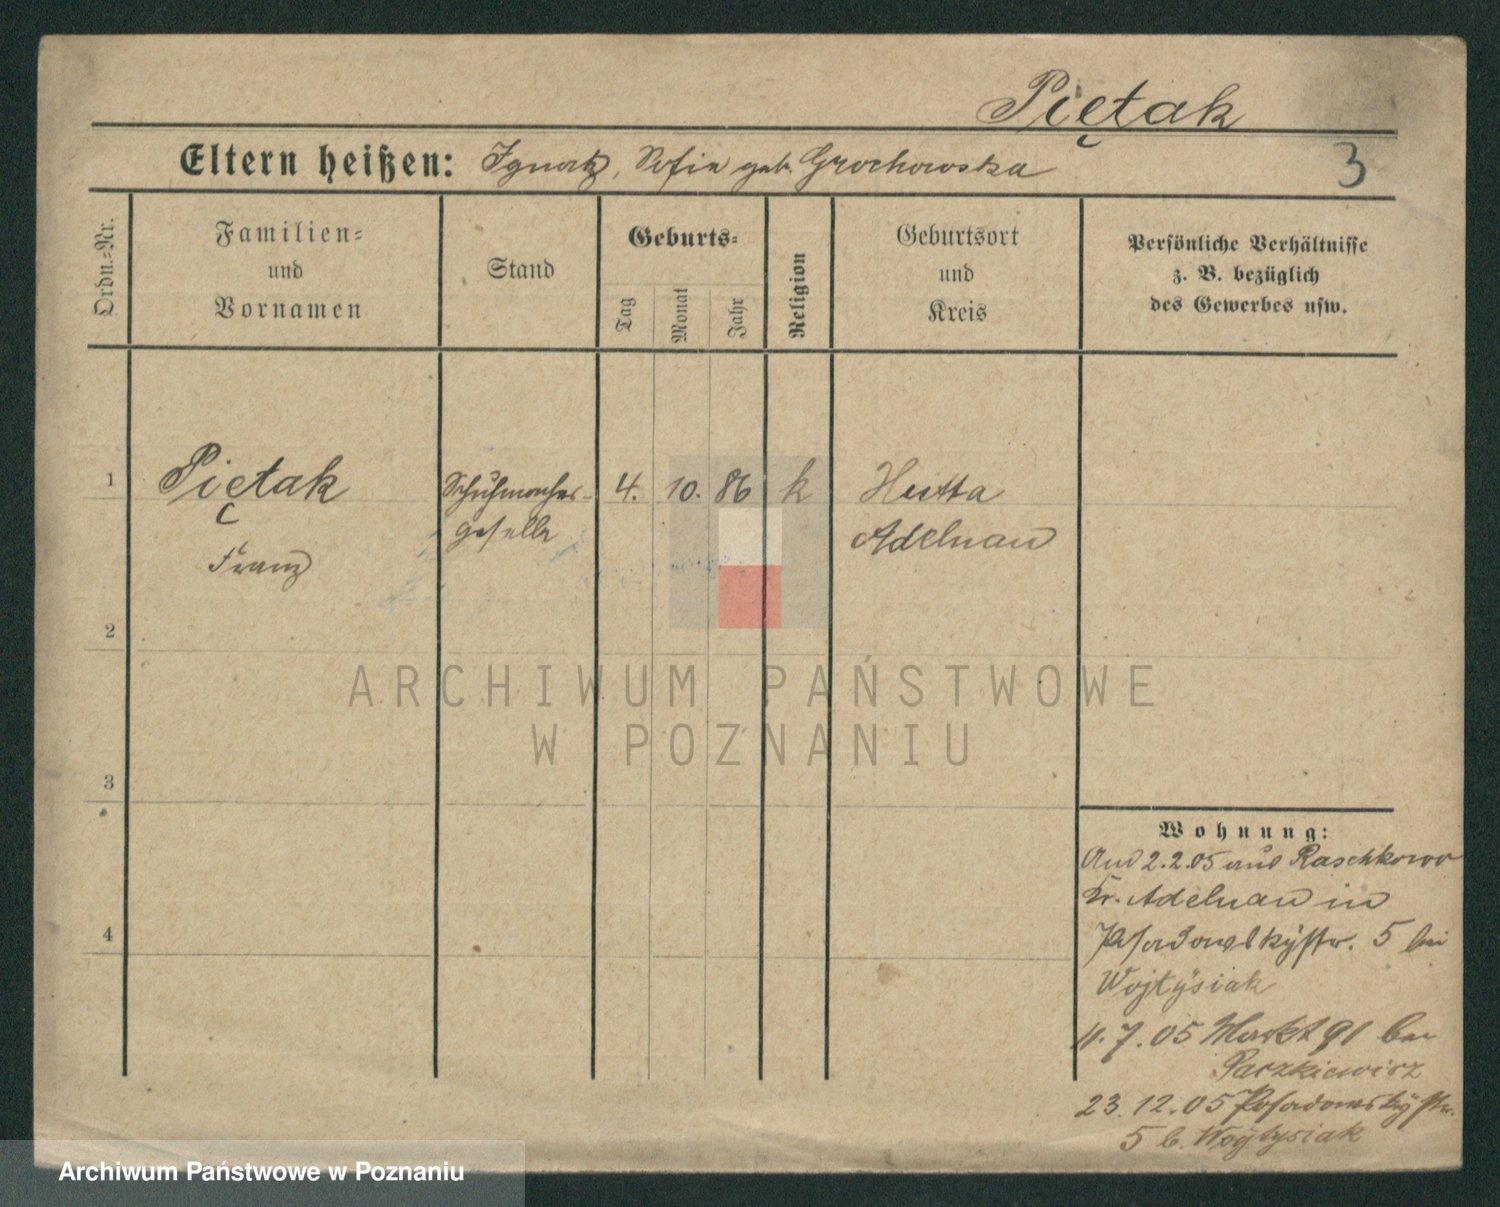 Piętak
Eltern heißen: Ignatz, Sofia geb. Grochowska
3
Ordn.-Nr.
Familien-
und
Vornamen
Stand
Geburts-
Tag
Monat
Jahr
Religion
Geburtsort
und
Kreis
Persönliche Verhältnisse
z. B. bezüglich
des Gewerbes usw.
1
Piętak
Franz
Schuhmacher-
geselle
4. 10. 86 k
Adelnau
2
ARCHIWUM PAŃSTWOWE
W POZNANIU
3
4
Wohnung:
2.2.05 aus Raschkow
Kr. Adelnau in
Posadowskystr. 5 bei
Wojtysiak
11.7.05 Markt 91 bei
Paczkiewicz
23.12.05 Posadowskystr.
5 b. Wojtysiak
Archiwum Państwowe w Poznaniu